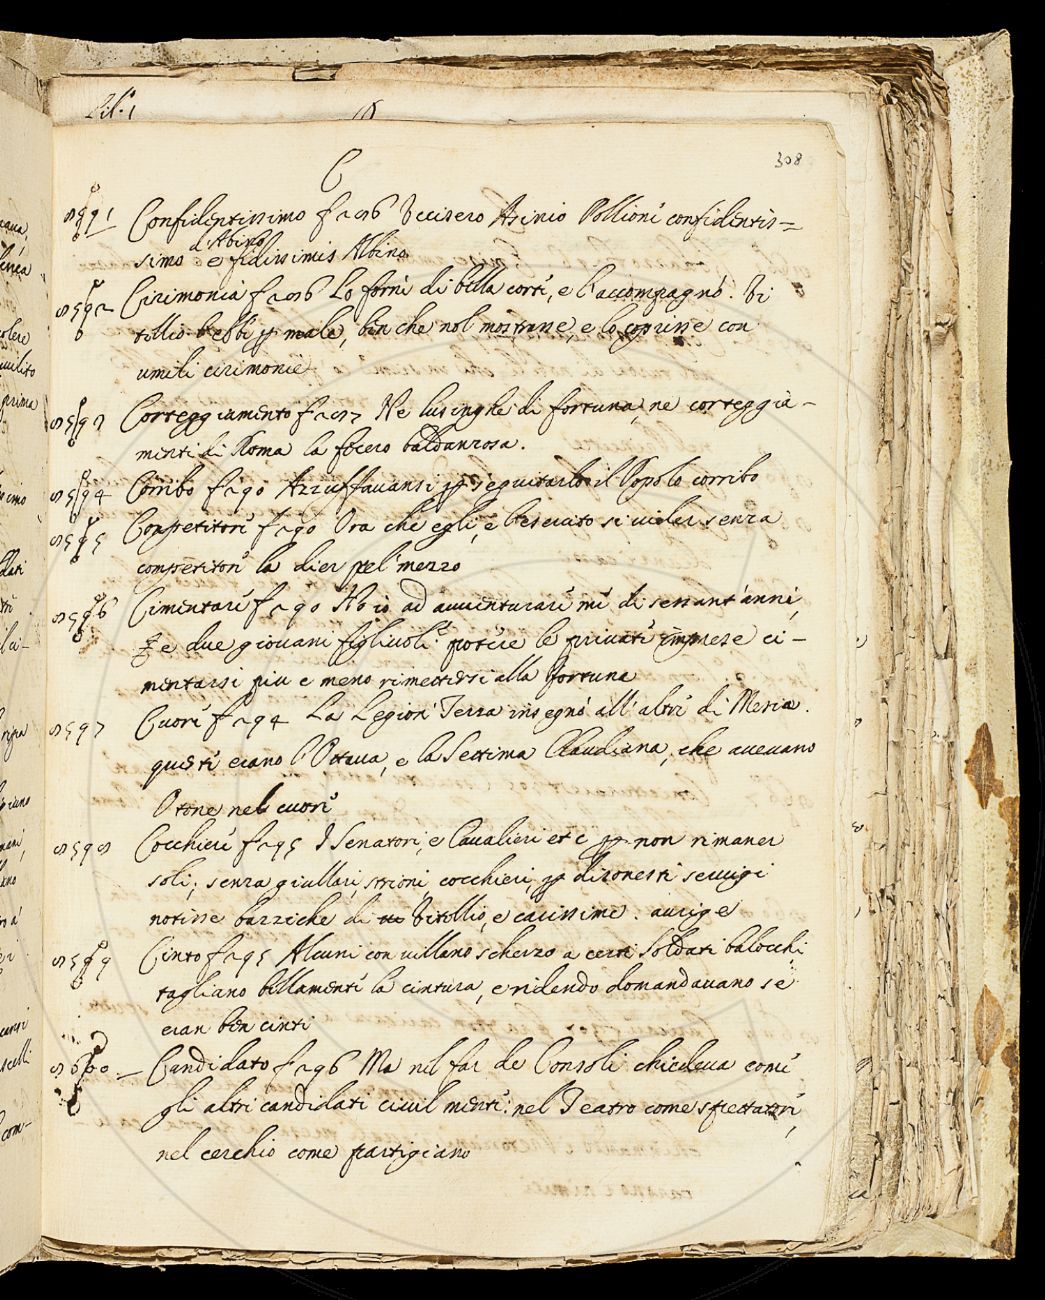 C
308
8591 Confidentissimo f 286 Uccisero Asinio Pollione confidentis=
d'Albino
simo e fidissimis Albino
8592 Cirimonia f 286 Lo fornì di bella corte, e l'accompagnò. Vi
tellio l'ebbe p male, ben che nol mostrasse, e lo coprisse con
umili cirimonie
8593 Corteggiamento f 287 Ne lusinghe di fortuna, ne corteggia-
menti di Roma la fecero baldanzosa.
8594 Corribo f 290 Azzuffavansi p seguitarlo il Popolo corribo
8595 Competitori f 290 Ora che egli, e l'esercito si voler senza
competitori la dier pel mezzo
8596 Cimentare f 290 Ho io ad avventurare me di sessant'anni,
e due giovani figlivoli? potere le private imprese ci-
mentarsi piu e meno rimettersi alla fortuna
8597 Cuore f 294 La Legion Terza insegnò all'altre di Mesia.
queste erano l'Ottava, e la Settima Claudiana, che avevano
Otone nel cuore
8598 Cocchieri f 295 I Senatori, e Cavalieri etc p non rimaner
soli; senza giullari, strioni, cocchieri, p disonesti servigi
notisse bazziche di Vitellio, e carissime. aurige
8599 Cinto f 295 Alcuni con villano scherzo a certi Soldati balocchi,
tagliano bellamente la cintura, e ridendo domandavano se
eran ben cinti
8600 Candidato f 296 Ma nel far de Consoli chiedeva come
gli altri candidati civil mente: nel Teatro come spettatore,
nel cerchio come partigiano